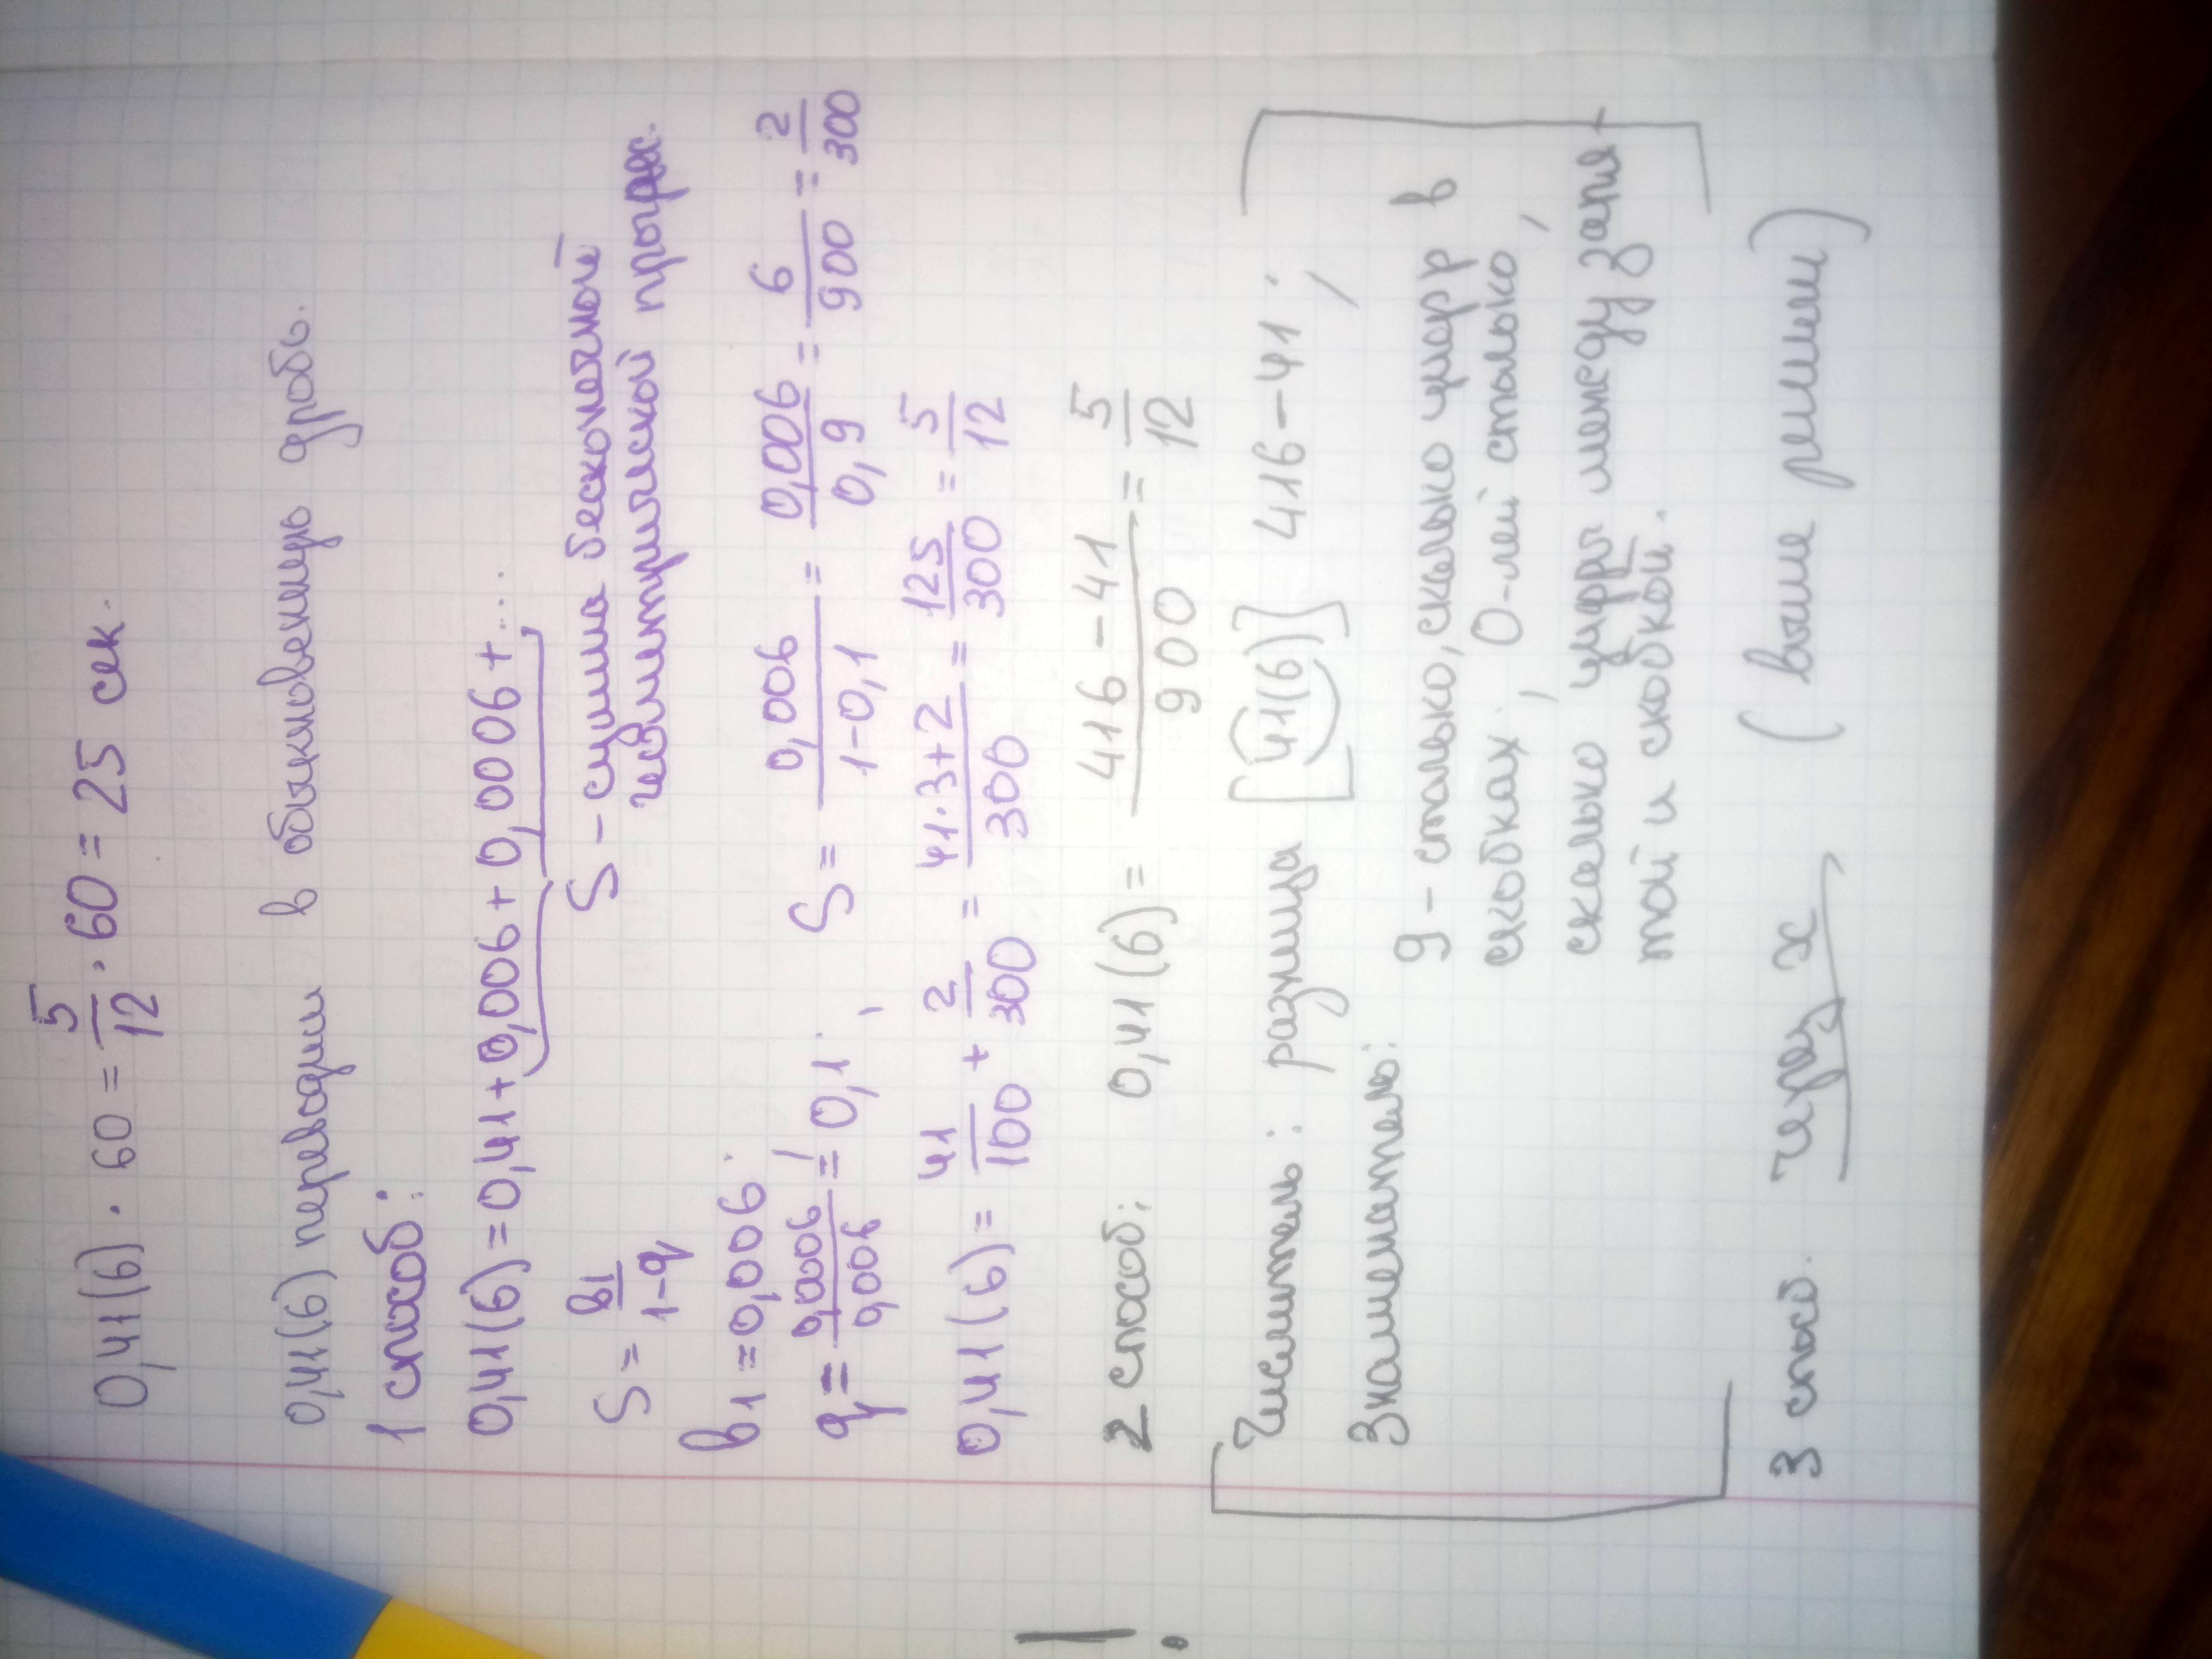 0,41(6) · 60 = 5/12 · 60 = 25 сек.
0,41(6) переводим в обыкновенную дробь.
1 способ:
0,41(6) = 0,41 + 0,006 + 0,0006 + ....
S = b1/(1-q) S – сумма бесконечной
геометрической прогрес.
b1 = 0,006; S = 0,006/(1-0,1) = 0,006/0,9 = 6/900 = 2/300
q = 0,0006/0,006 = 0,1;
0,41(6) = 41/100 + 2/300 = (41·3+2)/300 = 125/300 = 5/12
2 способ: 0,41(6) = (416-41)/900 = 5/12
Числитель: разница [41(6)] 416-41;
Знаменатель:
9 – столько, сколько цифр в
скобках; 0-лей столько,
сколько цифр между запя-
той и скобкой.
3 способ. через x (выше решили)
!